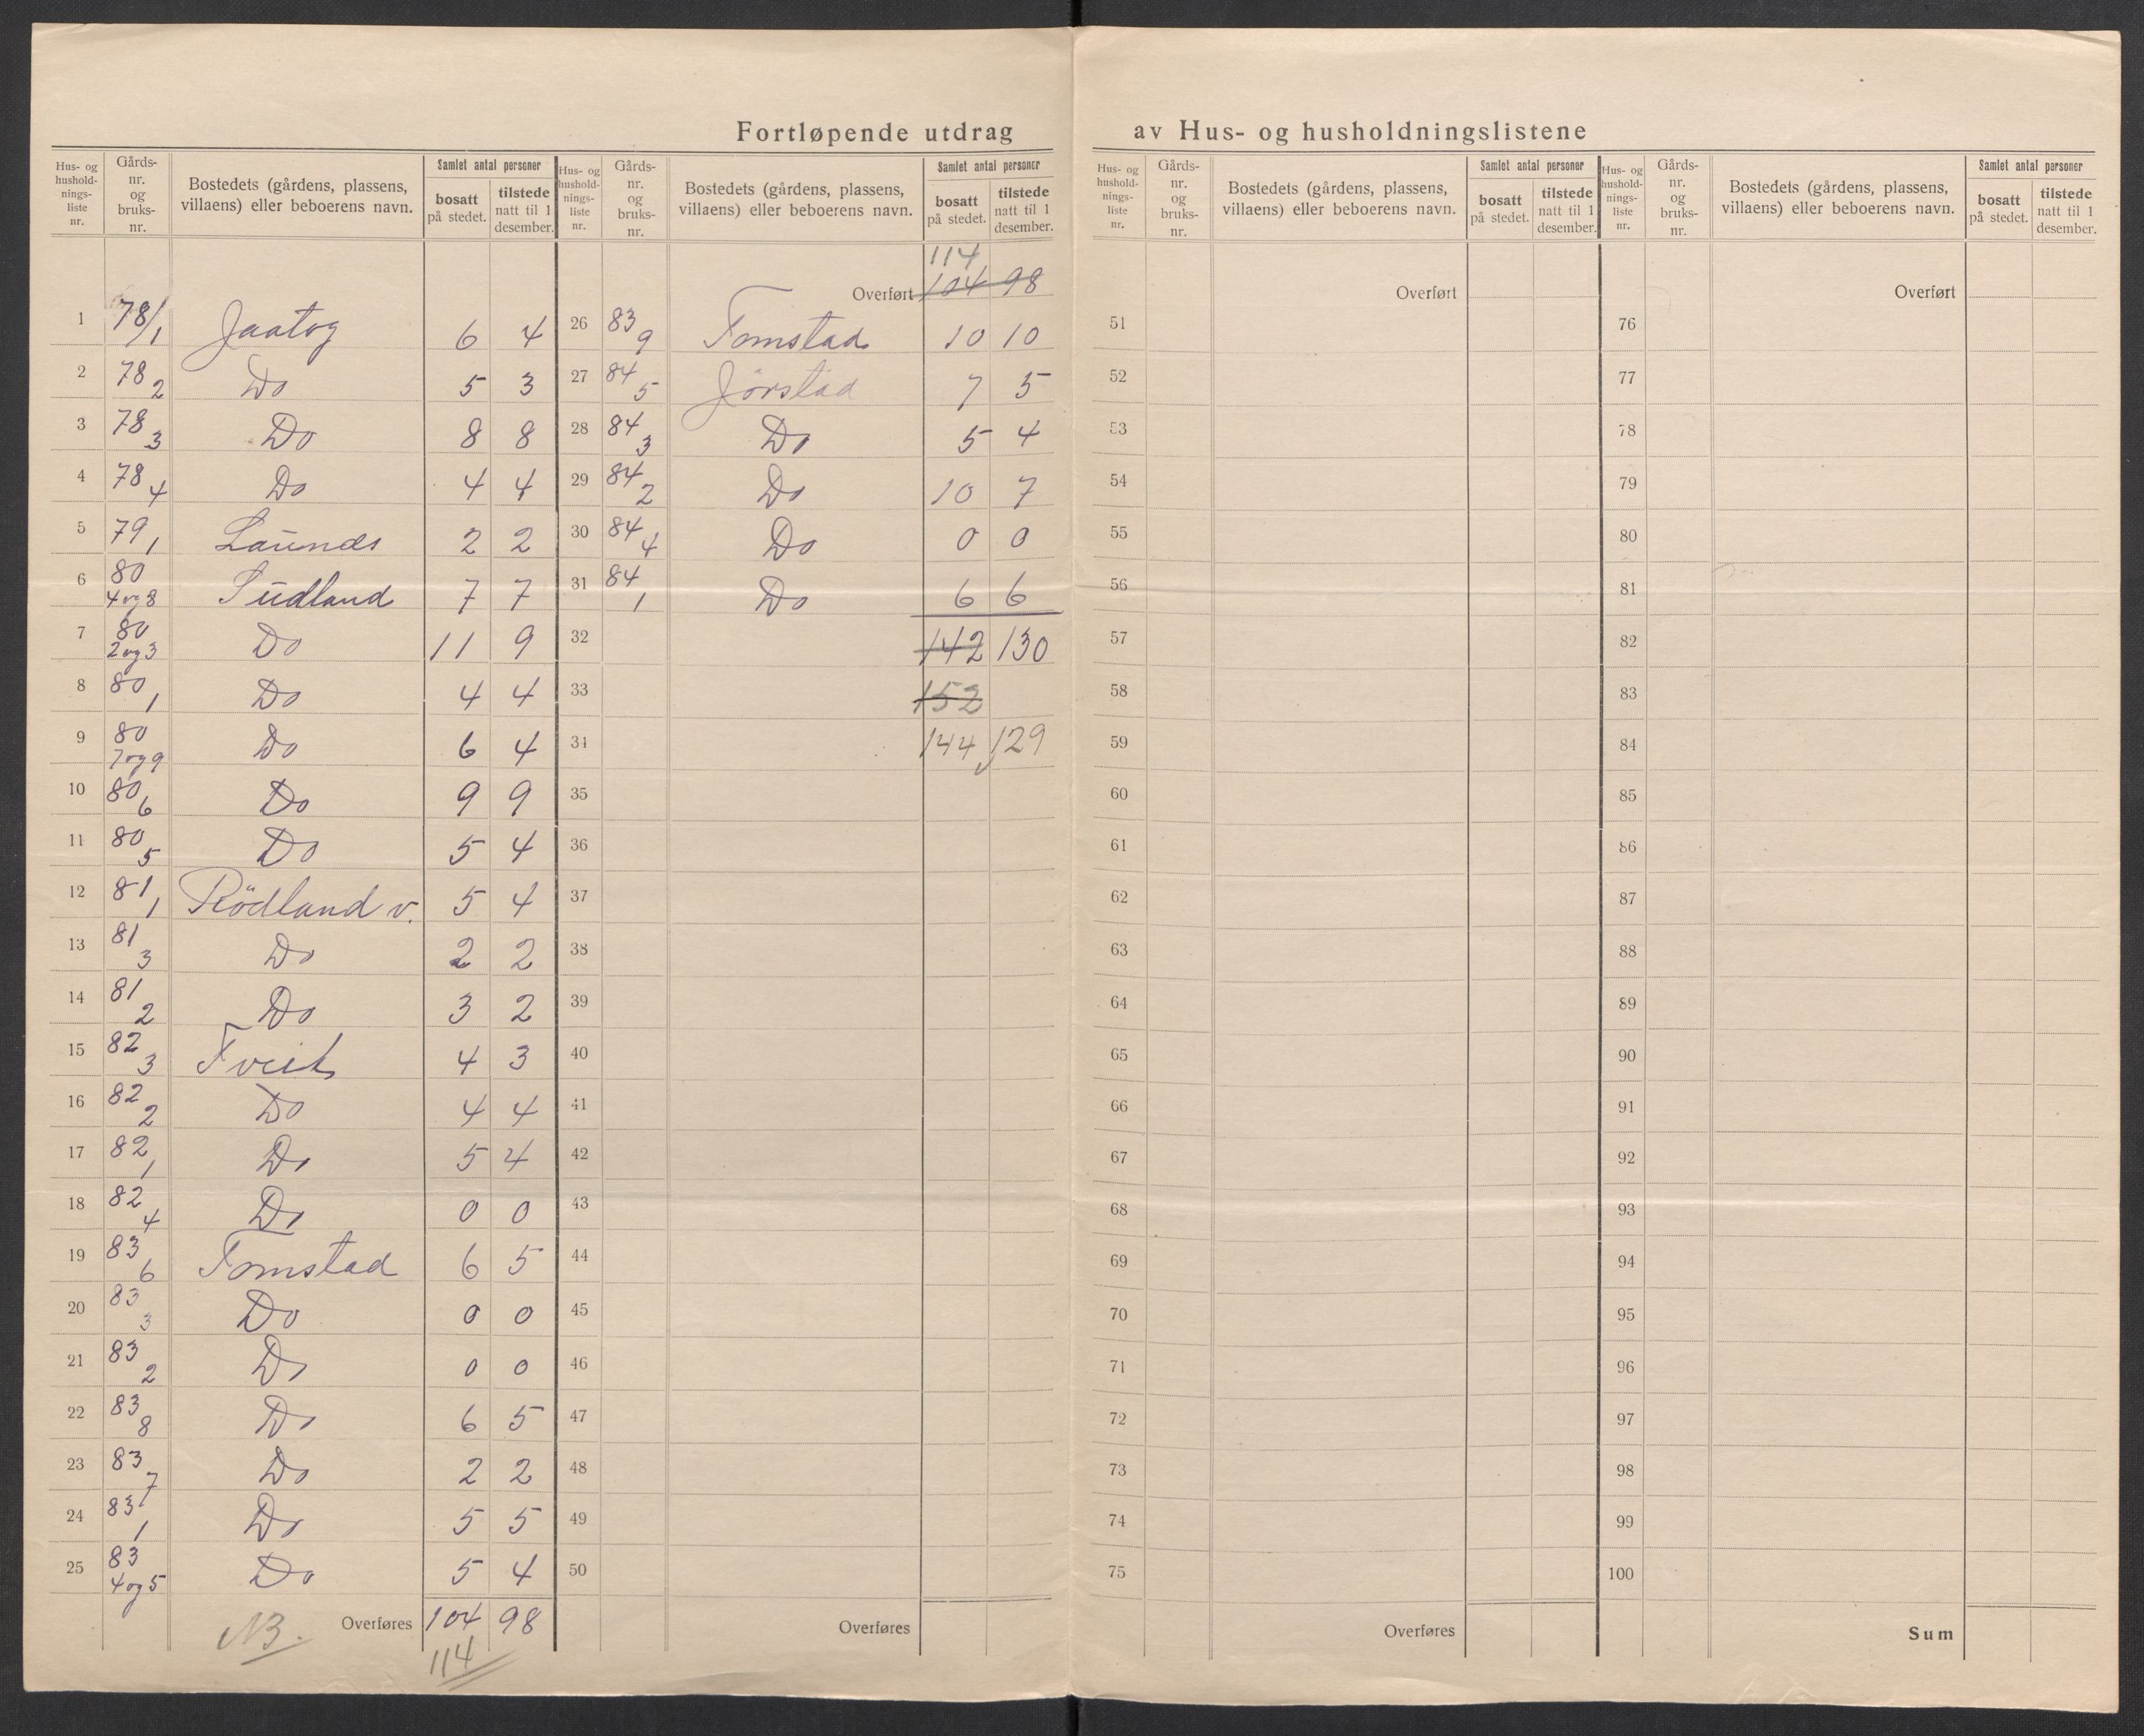 Fortløpende utdrag av Hus- og husholdningslistene
Hus- og hushold- nings- liste nr. | Gårds- nr. og bruks- nr. | Bostedets (gårdens, plassens, villaens) eller beboerens navn. | Samlet antal personer | bosatt på stedet. | tilstede natt til 1 desember.
1 78/1 Jaatog 6 4
2 78 2 Do 5 3
3 78 3 Do 8 8
4 78 4 Do 4 4
5 79 1 Launes 2 2
6 80 4 og 8 Sudland 7 7
7 80 2 og 3 Do 11 9
8 80 1 Do 4 4
9 80 7 og 9 Do 6 4
10 80 6 Do 9 9
11 80 5 Do 5 4
12 81 1 Rödland v. 5 4
13 81 3 Do 2 2
14 81 2 Do 3 2
15 82 3 Tveit 4 3
16 82 2 Do 4 4
17 82 1 Do 5 4
18 82 4 Do 0 0
19 83 6 Tomstad 6 5
20 83 3 Do 0 0
21 83 2 Do 0 0
22 83 8 Do 6 5
23 83 7 Do 2 2
24 83 1 Do 5 5
25 83 4 og 5 Do 5 4
NB. Overføres 104 98
114
Hus- og hushold- nings- liste nr. | Gårds- nr. og bruks- nr. | Bostedets (gårdens, plassens, villaens) eller beboerens navn. | Samlet antal personer | bosatt på stedet. | tilstede natt til 1 desember.
114
Overført 104 98
26 83 9 Tomstad 10 10
27 84 5 Jörstad 7 5
28 84 3 Do 5 4
29 84 2 Do 10 7
30 84 4 Do 0 0
31 84 1 Do 6 6
32 142 130
33 152
34 144 129
35
36
37
38
39
40
41
42
43
44
45
46
47
48
49
50
Overføres
Hus- og hushold- nings- liste nr. | Gårds- nr. og bruks- nr. | Bostedets (gårdens, plassens, villaens) eller beboerens navn. | Samlet antal personer | bosatt på stedet. | tilstede natt til 1 desember.
Overført
51
52
53
54
55
56
57
58
59
60
61
62
63
64
65
66
67
68
69
70
71
72
73
74
75
Overføres
Hus- og hushold- nings- liste nr. | Gårds- nr. og bruks- nr. | Bostedets (gårdens, plassens, villaens) eller beboerens navn. | Samlet antal personer | bosatt på stedet. | tilstede natt til 1 desember.
Overført
76
77
78
79
80
81
82
83
84
85
86
87
88
89
90
91
92
93
94
95
96
97
98
99
100
Sum